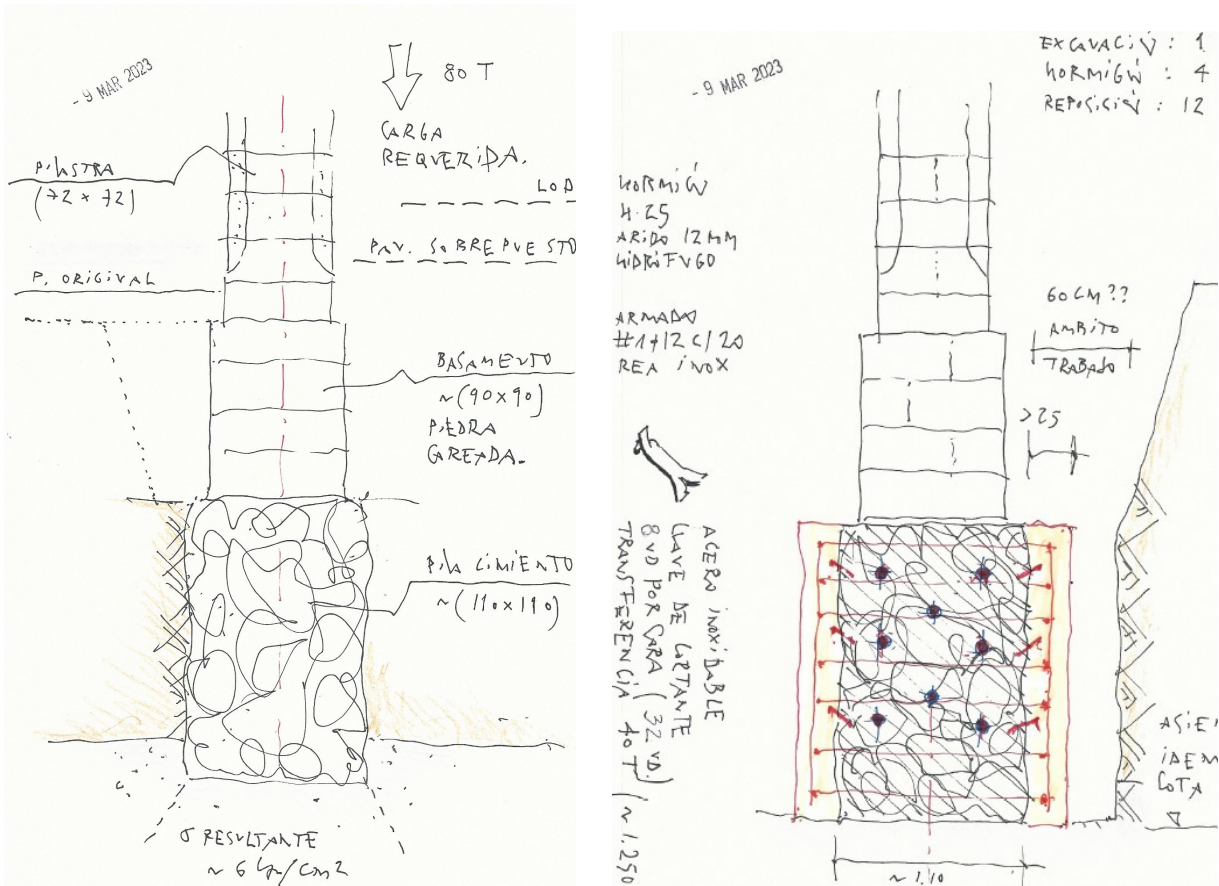 - 9 MAR 2023
80 T
CARGA
REQUERIDA.
PILASTRA
(72 x 72)
LOD
PAV. SOBREPUESTO
P. ORIGINAL
BASAMENTO
~(90x90)
PIEDRA
CAREADA.
PILA CIMIENTO
~(110x110)
σ RESULTANTE
~ 6 kp/cm2
- 9 MAR 2023
EXCAVACIÓN : 1
HORMIGÓN : 4
REPOSICIÓN : 12
HORMIGÓN
H-25
ARIDO 12 MM
HIDRÓFUGO
ARMADO
#1φ12 c/20
REA INOX
60 CM ??
AMBITO
TRABAJO
>25
ACERO INOXIDABLE
LLAVE DE CORTANTE
8 UD POR CARA (32 UD.)
TRANSFERENCIA 40 T (~1.250
ASIEN
IDEM
COTA
~1.10